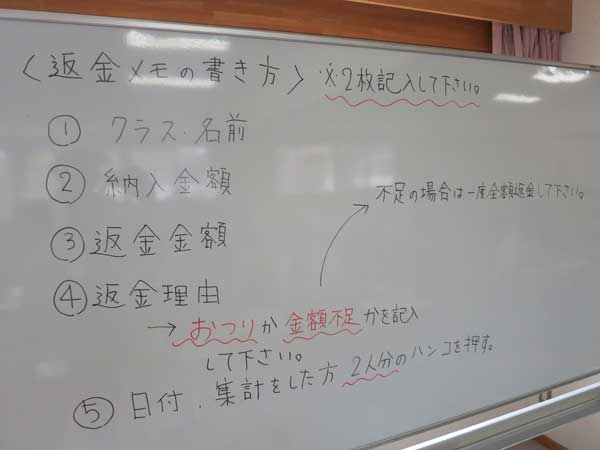 〈返金メモの書き方〉 ※2枚記入して下さい。
① クラス・名前
② 納入金額
不足の場合は一度全額返金して下さい。
③ 返金金額
④ 返金理由
→ おつりか金額不足かを記入
して下さい。
⑤ 日付・集計をした方2人分のハンコを押す。